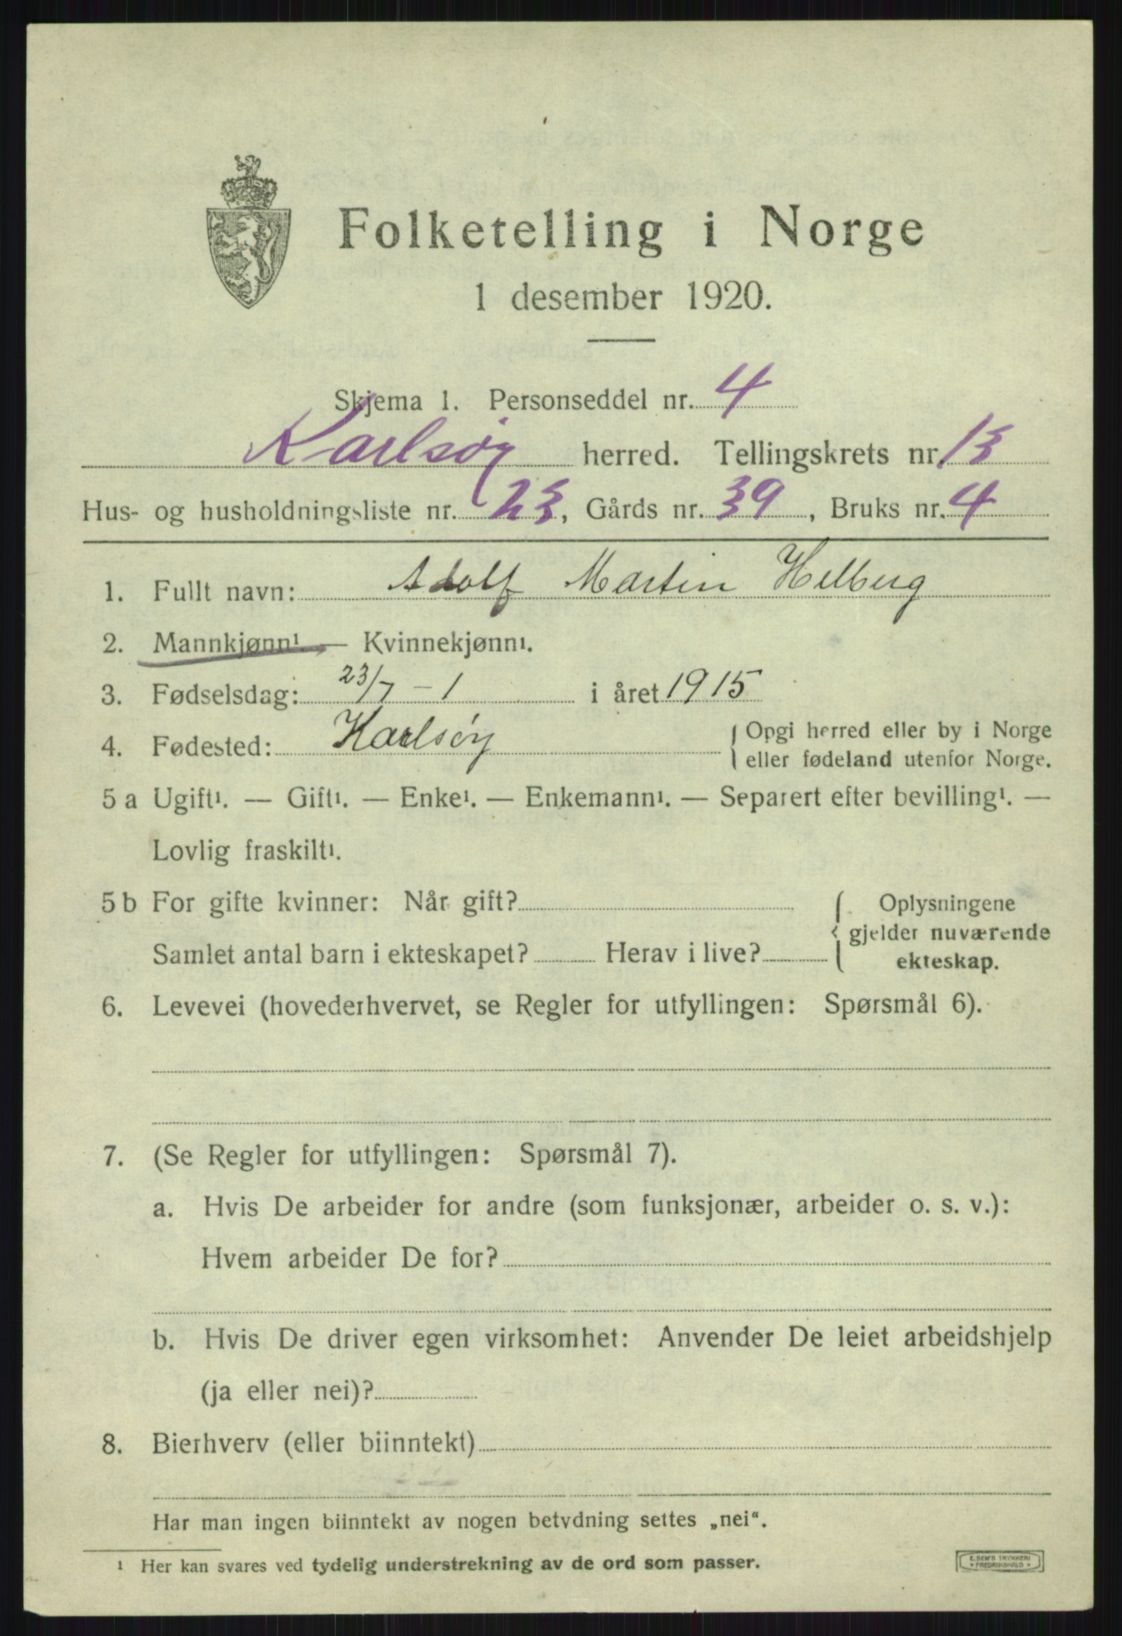 Folketelling i Norge
1 desember 1920.
Skjema 1. Personseddel nr. 4
Karlsøy herred. Tellingskrets nr. 13
Hus- og husholdningsliste nr. 23, Gårds nr. 39, Bruks nr. 4
1. Fullt navn: Adolf Martin Helberg
2. Mannkjønn¹. — Kvinnekjønn¹.
3. Fødselsdag: 23/7 - 1 i året 1915
4. Fødested: Karlsøy { Opgi herred eller by i Norge
eller fødeland utenfor Norge.
5 a Ugift¹. — Gift¹. — Enke¹. — Enkemann¹. — Separert efter bevilling¹. —
Lovlig fraskilt¹.
5 b For gifte kvinner: Når gift? { Oplysningene
gjelder nuværende
Samlet antal barn i ekteskapet? Herav i live? ekteskap.
6. Levevei (hovederhvervet, se Regler for utfyllingen: Spørsmål 6).
7. (Se Regler for utfyllingen: Spørsmål 7).
a. Hvis De arbeider for andre (som funksjonær, arbeider o. s. v.):
Hvem arbeider De for?
b. Hvis De driver egen virksomhet: Anvender De leiet arbeidshjelp
(ja eller nei)?
8. Bierhverv (eller biinntekt)
Har man ingen biinntekt av nogen betydning settes „nei“.
¹ Her kan svares ved tydelig understrekning av de ord som passer.